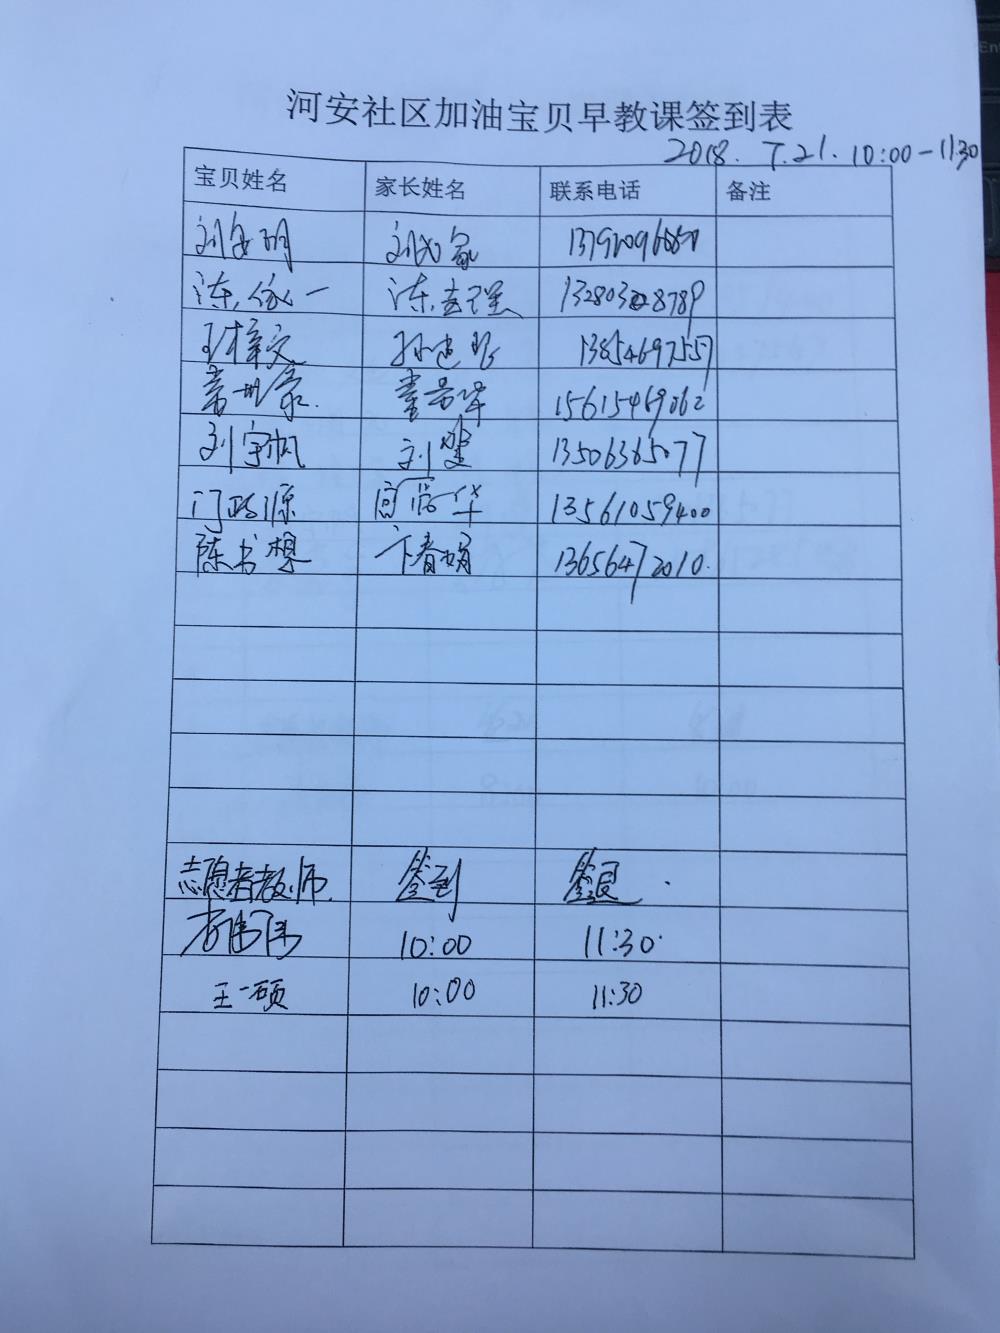 河安社区加油宝贝早教课签到表
2018. 7.21. 10:00-11:30
宝贝姓名 家长姓名 联系电话 备注
刘
陈依一 陈 13280328789
13854697557
15615469062
刘宇帆 刘 13506365077
门政源 华 13561059400
陈书想 卞春娟 13656472010.
志愿者教师. 签到 签退.
10:00 11:30.
王一硕 10:00 11:30